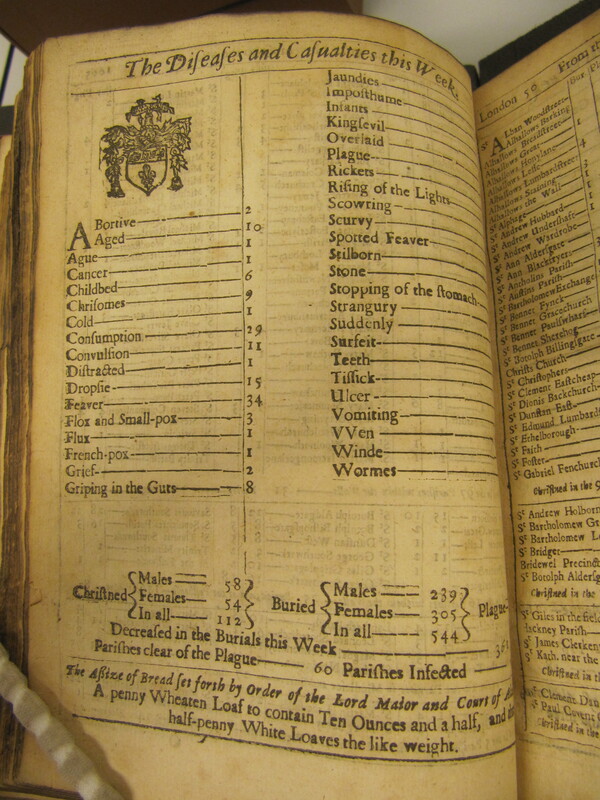 The Diſeaſes and Caſualties this Week.
ABortive 2
Aged 10
Ague 1
Cancer 1
Childbed 6
Chriſomes 9
Cold 1
Conſumption 29
Convulſion 11
Diſtracted 1
Dropſie 15
Feaver 34
Flox and Small-pox 3
Flux 1
French-pox 1
Grief 2
Griping in the Guts 8
Jaundies
Impoſthume
Infants
Kingſevil
Overlaid
Plague
Rickets
Riſing of the Lights
Scowring
Scurvy
Spotted Feaver
Stilborn
Stone
Stopping of the ſtomach
Strangury
Suddenly
Surfeit
Teeth
Tiſſick
Ulcer
Vomiting
VVen
Winde
Wormes
Chriſtned { Males 58 Females 54 In all 112 } Buried { Males 239 Females 305 In all 544 } Plague
Decreaſed in the Burials this Week
Pariſhes clear of the Plague 60 Pariſhes Infected
The Aſſize of Bread ſet forth by Order of the Lord Maior and Court of
A penny Wheaten Loaf to contain Ten Ounces and a half, and
half-penny White Loaves the like weight.
London 50 From the
Sᵗ ALban Woodſtreet
Alhallows Barking
Alhallows Breadſtreet
Alhallows Great
Alhallows Honylane
Alhallows Leſs
Alhallows Lumbardſtreet
Alhallows Staining
Alhallows the Wall
Sᵗ Alphage
Sᵗ Andrew Hubbard
Sᵗ Andrew Underſhaft
Sᵗ Andrew Wardrobe
Sᵗ Ann Alderſgate
Sᵗ Ann Blackfryers
Sᵗ Antholins Pariſh
Sᵗ Auſtins Pariſh
Sᵗ Bartholomew Exchange
Sᵗ Bennet Fynck
Sᵗ Bennet Gracechurch
Sᵗ Bennet Paulſwharf
Sᵗ Bennet Sherehog
Sᵗ Botolph Billingſgate
Chriſts Church
Sᵗ Chriſtophers
Sᵗ Clement Eaſtcheap
Sᵗ Dionis Backchurch
Sᵗ Dunſtan Eaſt
Sᵗ Edmund Lumbard
Sᵗ Ethelborough
Sᵗ Faith
Sᵗ Foſter
Sᵗ Gabriel Fenchurch
Chriſtned in the 9
Sᵗ Andrew Holborn
Sᵗ Bartholomew
Sᵗ Bartholomew
Sᵗ Bridget
Bridewel Precinct
Sᵗ Botolph Alderſ
Chriſtned in the
Sᵗ Giles in the field
Hackney Pariſh
Sᵗ James Clerken
Sᵗ Kath. near the
Chriſtned in the
Sᵗ Clement Dan
Sᵗ Paul Covent
Chriſtned in